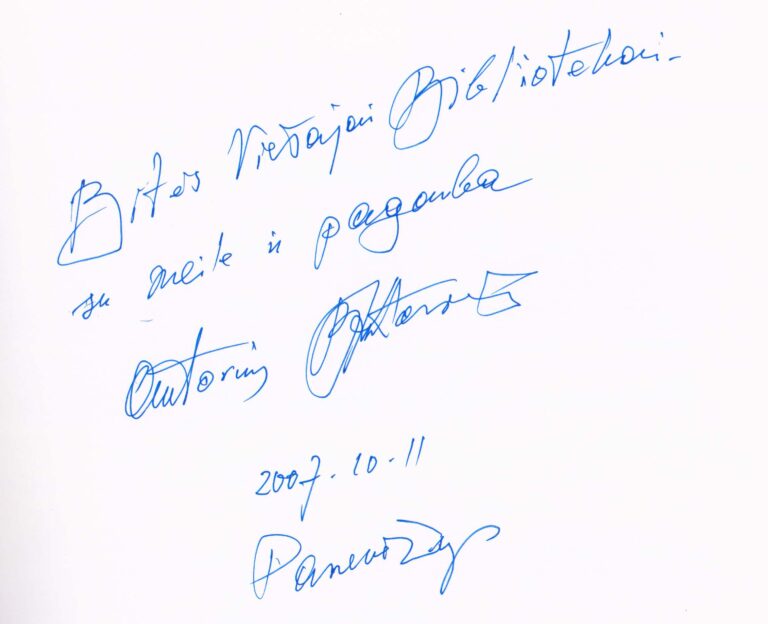 Bitės Viešajai Bibliotekai-
su meile ir pagarba
Autorius
2007.10.11
Panevėžys